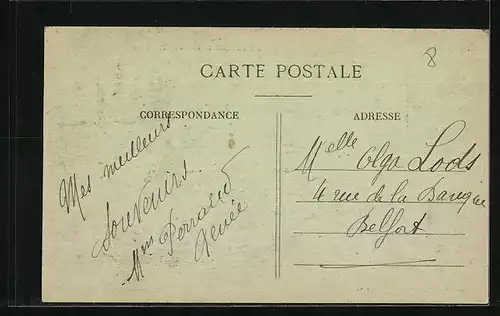 8
CARTE POSTALE
CORRESPONDANCE
Mes meilleurs
Souvenirs
Mme Perraud
Renée
ADRESSE
Melle Olga Lods
4 rue de la Banque
Belfort